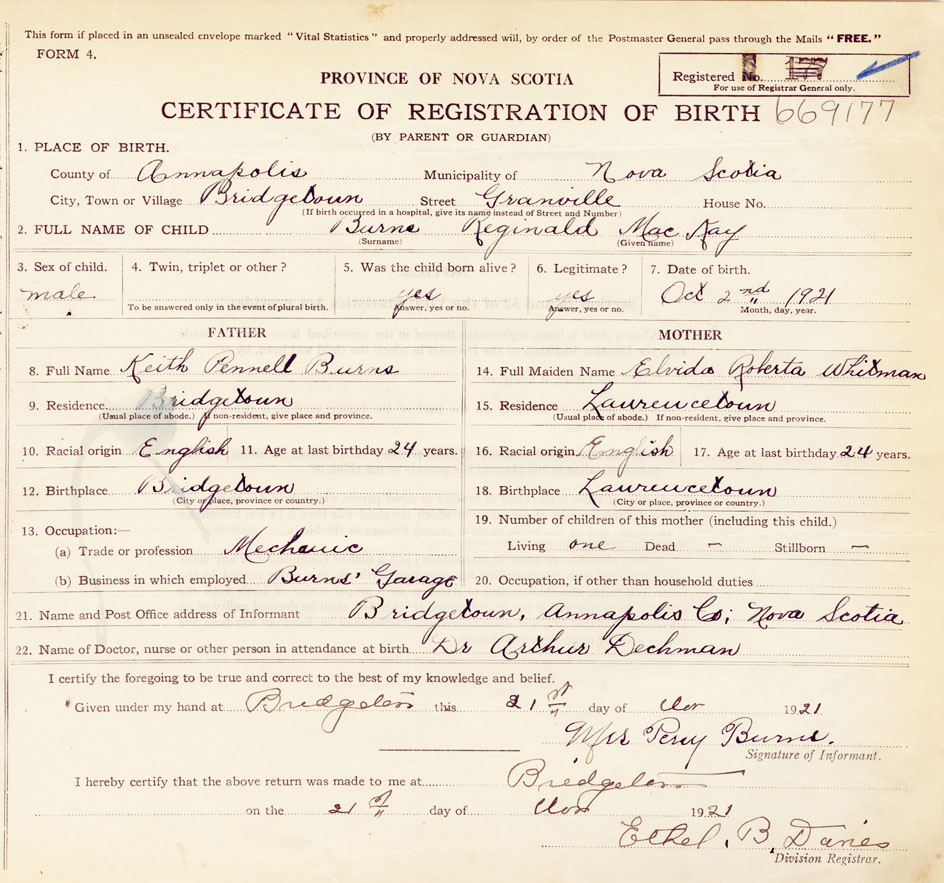 This form if placed in an unsealed envelope marked "Vital Statistics" and properly addressed will, by order of the Postmaster General pass through the Mails "FREE."
FORM 4.
PROVINCE OF NOVA SCOTIA
Registered No.
For use of Registrar General only.
CERTIFICATE OF REGISTRATION OF BIRTH 669177
(BY PARENT OR GUARDIAN)
1. PLACE OF BIRTH.
County of Annapolis Municipality of Nova Scotia
City, Town or Village Bridgetown Street Granville House No.
(If birth occurred in a hospital, give its name instead of Street and Number)
2. FULL NAME OF CHILD Burns Reginald MacKay
(Surname) (Given name)
3. Sex of child. 4. Twin, triplet or other? 5. Was the child born alive? 6. Legitimate? 7. Date of birth.
male yes yes Oct 2nd 1921
To be answered only in the event of plural birth. Answer, yes or no. Answer, yes or no. Month, day, year.
FATHER MOTHER
8. Full Name Keith Pennell Burns 14. Full Maiden Name Elvida Roberta Whitman
9. Residence Bridgetown 15. Residence Laurencetown
(Usual place of abode.) If non-resident, give place and province. (Usual place of abode.) If non-resident, give place and province.
10. Racial origin English 11. Age at last birthday 24 years. 16. Racial origin English 17. Age at last birthday 24 years.
12. Birthplace Bridgetown 18. Birthplace Laurencetown
(City or place, province or country.) (City or place, province or country.)
13. Occupation:— 19. Number of children of this mother (including this child.)
(a) Trade or profession Mechanic Living one Dead — Stillborn —
(b) Business in which employed Burns' Garage 20. Occupation, if other than household duties
21. Name and Post Office address of Informant Bridgetown, Annapolis Co; Nova Scotia
22. Name of Doctor, nurse or other person in attendance at birth Dr Arthur Dechman
I certify the foregoing to be true and correct to the best of my knowledge and belief.
Given under my hand at Bridgeton this 21st day of Nov 1921
Mrs Percy Burns.
Signature of Informant.
I hereby certify that the above return was made to me at Bridgeton
on the 21st day of Nov 1921
Ethel. B. Davies
Division Registrar.